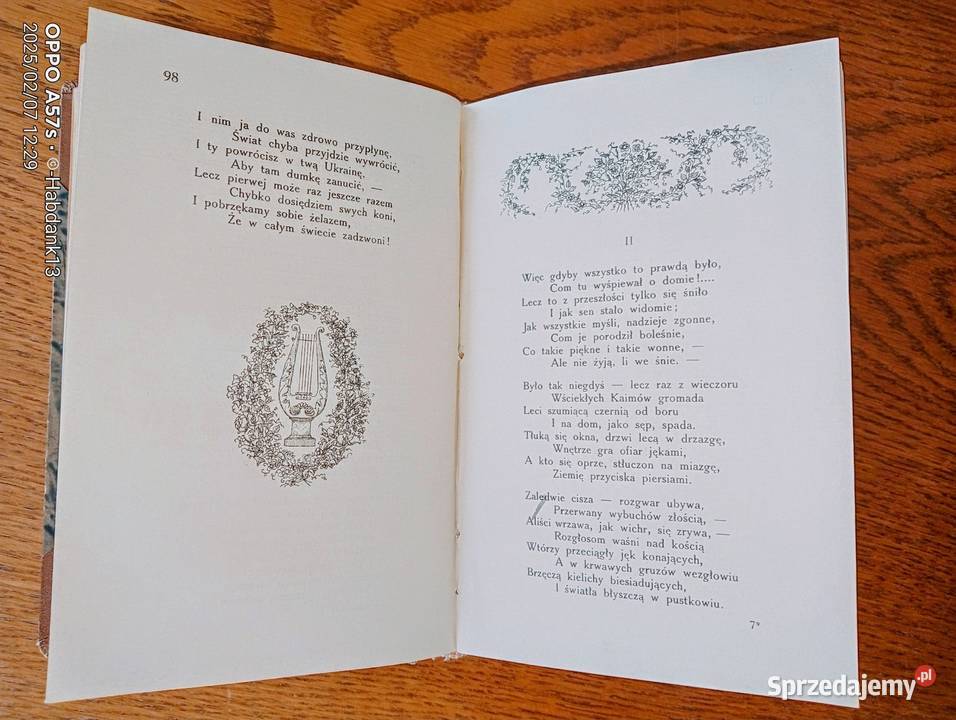 98
I nim ja do was zdrowo przypłynę,
Świat chyba przyjdzie wywrócić,
I ty powrócisz w twą Ukrainę,
Aby tam dumkę zanucić, —
Lecz pierwej może raz jeszcze razem
Chybko dosiędziem swych koni,
I pobrzękamy sobie żelazem,
Że w całym świecie zadzwoni!
II
Więc gdyby wszystko to prawdą było,
Com tu wyśpiewał o domie!....
Lecz to z przeszłości tylko się śniło
I jak sen stało widomie;
Jak wszystkie myśli, nadzieje zgonne,
Com je porodził boleśnie,
Co takie piękne i takie wonne, —
Ale nie żyją, li we śnie. —
Było tak niegdyś — lecz raz z wieczoru
Wściekłych Kaimów gromada
Leci szumiącą czernią od boru
I na dom, jako sęp, spada.
Tłuką się okna, drzwi lecą w drzazgę,
Wnętrze gra ofiar jękami,
A kto się oprze, stłuczon na miazgę,
Ziemię przyciska piersiami.
Zaledwie cisza — rozgwar ubywa,
Przerwany wybuchów złością, —
Aliści wrzawa, jak wichr, się zrywa, —
Rozgłosom waśni nad kością
Wtórzy przeciągły jęk konających,
A w krwawych gruzów wezgłowiu
Brzęczą kielichy biesiadujących,
I światła błyszczą w pustkowiu.
7*
OPPO A57s · ©-Habdank13
2025/02/07 12:29
Sprzedajemy.pl